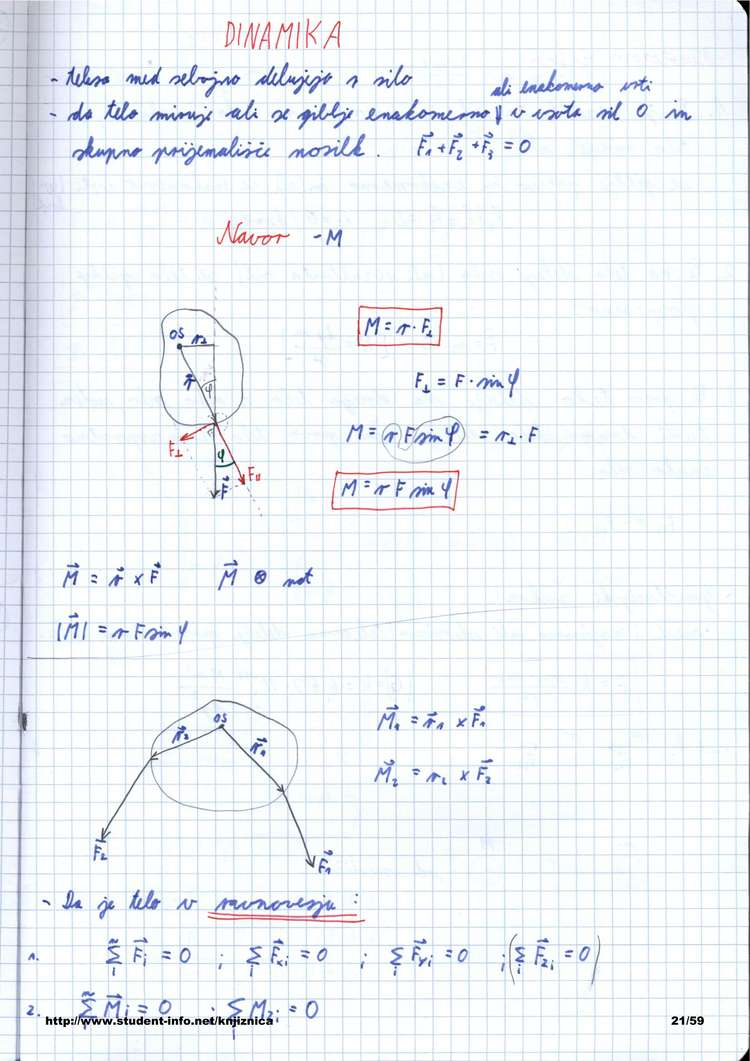 DINAMIKA
- telesa med sebojno delujejo s silo
ali enakomerno vrti
- da telo miruje ali se giblje enakomerno ↓ v vsota sil 0 in
skupno prijemališče nosilk. F⃗₁ + F⃗₂ + F⃗₃ = 0
Navor - M
OS r⊥
r⃗ φ
F⊥ φ F⃗ F∥
M = r · F⊥
F⊥ = F · sin φ
M = r F sin φ = r⊥ · F
M = r F sin φ
M⃗ = r⃗ × F⃗ M⃗ ⊗ not
|M⃗| = r F sin φ
OS
r⃗₂ r⃗₁
F⃗₂ F⃗₁
M⃗₁ = r⃗₁ × F⃗₁
M⃗₂ = r₂ × F⃗₂
- Da je telo v ravnovesju:
1. ∑ᵢⁿ F⃗ᵢ = 0 ; ∑ᵢ F⃗xᵢ = 0 ; ∑ᵢ F⃗yᵢ = 0 ; (∑ᵢ F⃗zᵢ = 0)
2. ∑ᵢⁿ M⃗ᵢ = 0 ; ∑ᵢ Mzᵢ = 0
http://www.student-info.net/knjiznica 21/59